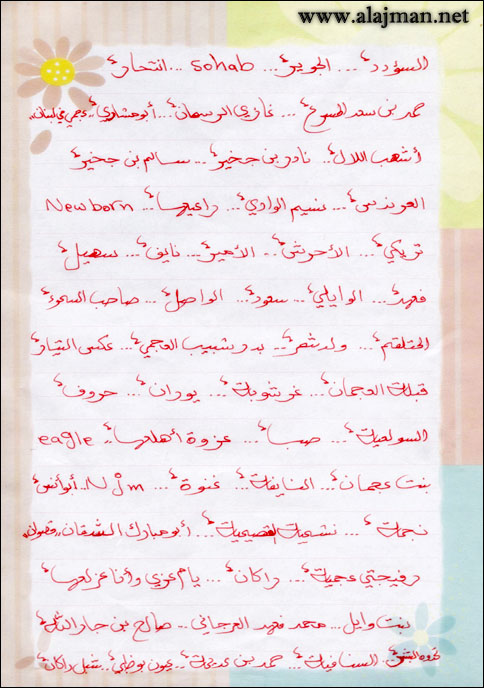 www.alajman.net
السؤدد ... الجوير ... Sohab ... انتحار
حمد بن سعد المسوع ... غازي الرسمان ... أبو مشاري .. عجمي في لبنان ..
أشهب اللال .. نادر بن جخير .. سالم بن جخير
العرندس ... نسيم الوادي ... راعيها ... New born
تريكي ... الأحرش .. الأمير ... نايف ... سهيل
فهد ... الوايلي ... سعود ... الواصل ... صاحب السمو
المتلقم ... ولد شمر .. بدر شبيب العجمي ... عكس التيار
قبلة العجمان ... غرشوبة ... يودان ... حروف
السولعية ... صبا ... عزوة أهلها .. eagle
بنت عجمان ... النايفة ... غنوة ... Njm .. أبو أنس
نجمة ... نشمية ... أبو مبارك الشقان ..
رفيجتي عجمية ... راكان ... يام عزي وأنا عز لها
بنت وايل ... محمد فهد العرجاني .. صالح بن جار الله
السنافية ... حمد بن عديمان .. عيون بوظبي .. شبل راكان